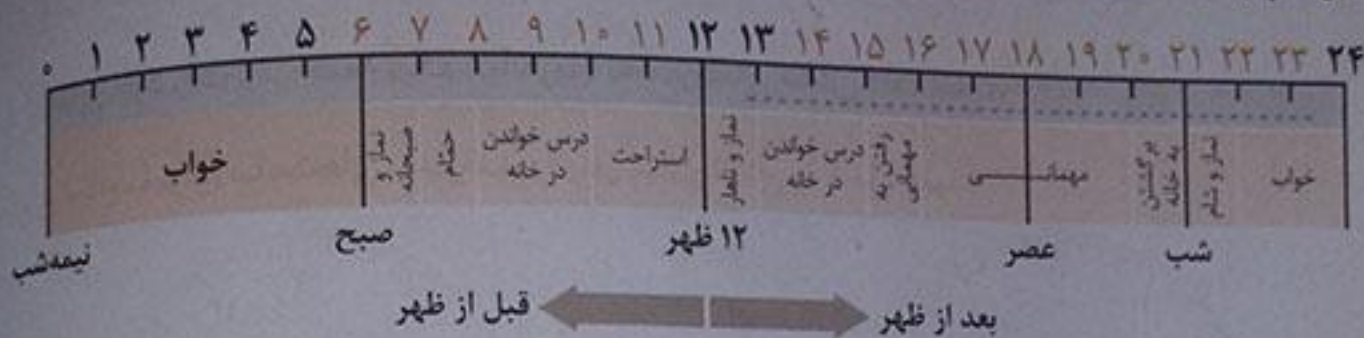 ۰ ۱ ۲ ۳ ۴ ۵ ۶ ۷ ۸ ۹ ۱۰ ۱۱ ۱۲ ۱۳ ۱۴ ۱۵ ۱۶ ۱۷ ۱۸ ۱۹ ۲۰ ۲۱ ۲۲ ۲۳ ۲۴
خواب
نماز و
صبحانه
حمام
درس خواندن
در خانه
استراحت
نماز و ناهار
درس خواندن
در خانه
رفتن به
مهمانی
مهمانــــــــی
برگشتن
به خانه
نماز و شام
خواب
نیمه‌شب
صبح
۱۲ ظهر
عصر
شب
قبل از ظهر
بعد از ظهر